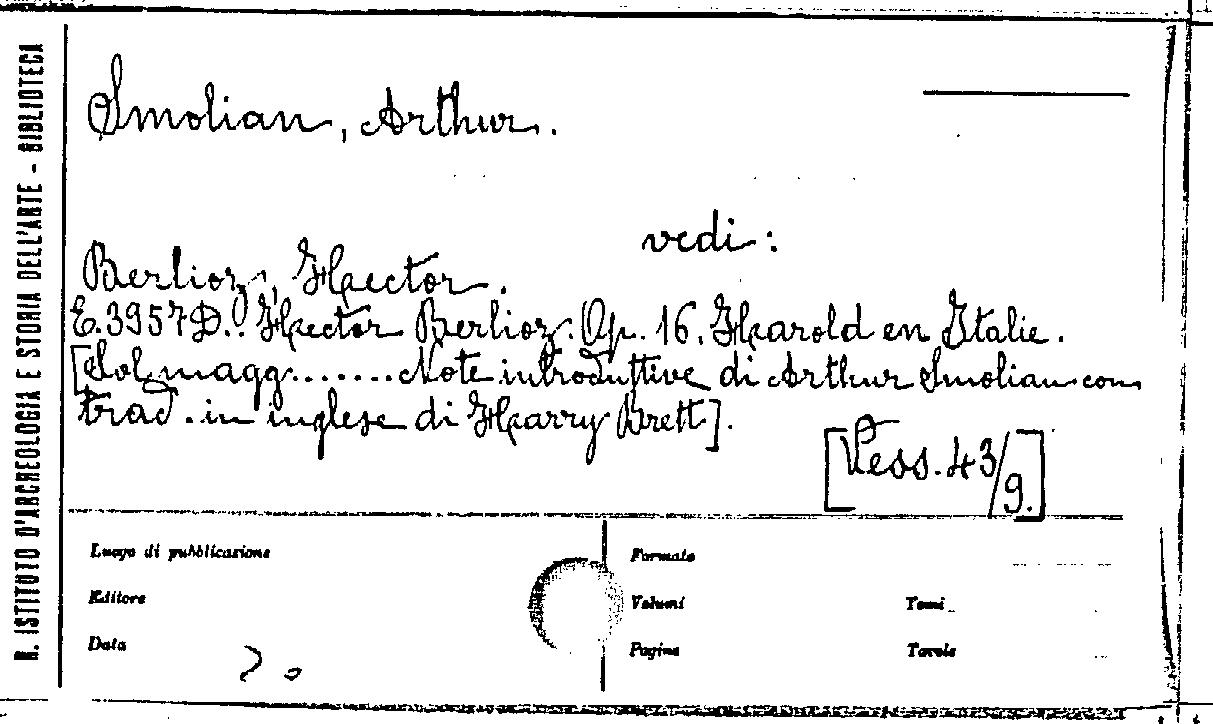 R. ISTITUTO D'ARCHEOLOGIA E STORIA DELL'ARTE - BIBLIOTECA
Smolian, Arthur.
vedi:
Berlioz, Hector.
E.3957D.. Hector Berlioz. Op. 16. Harold en Italie.
[Sol magg.......Note introduttive di Arthur Smolian con
trad. in inglese di Harry Brett].
[Vess. 43/9.]
Luogo di pubblicazione
Formato
Editore
Volumi
Tomi
Data
Pagine
Tavole